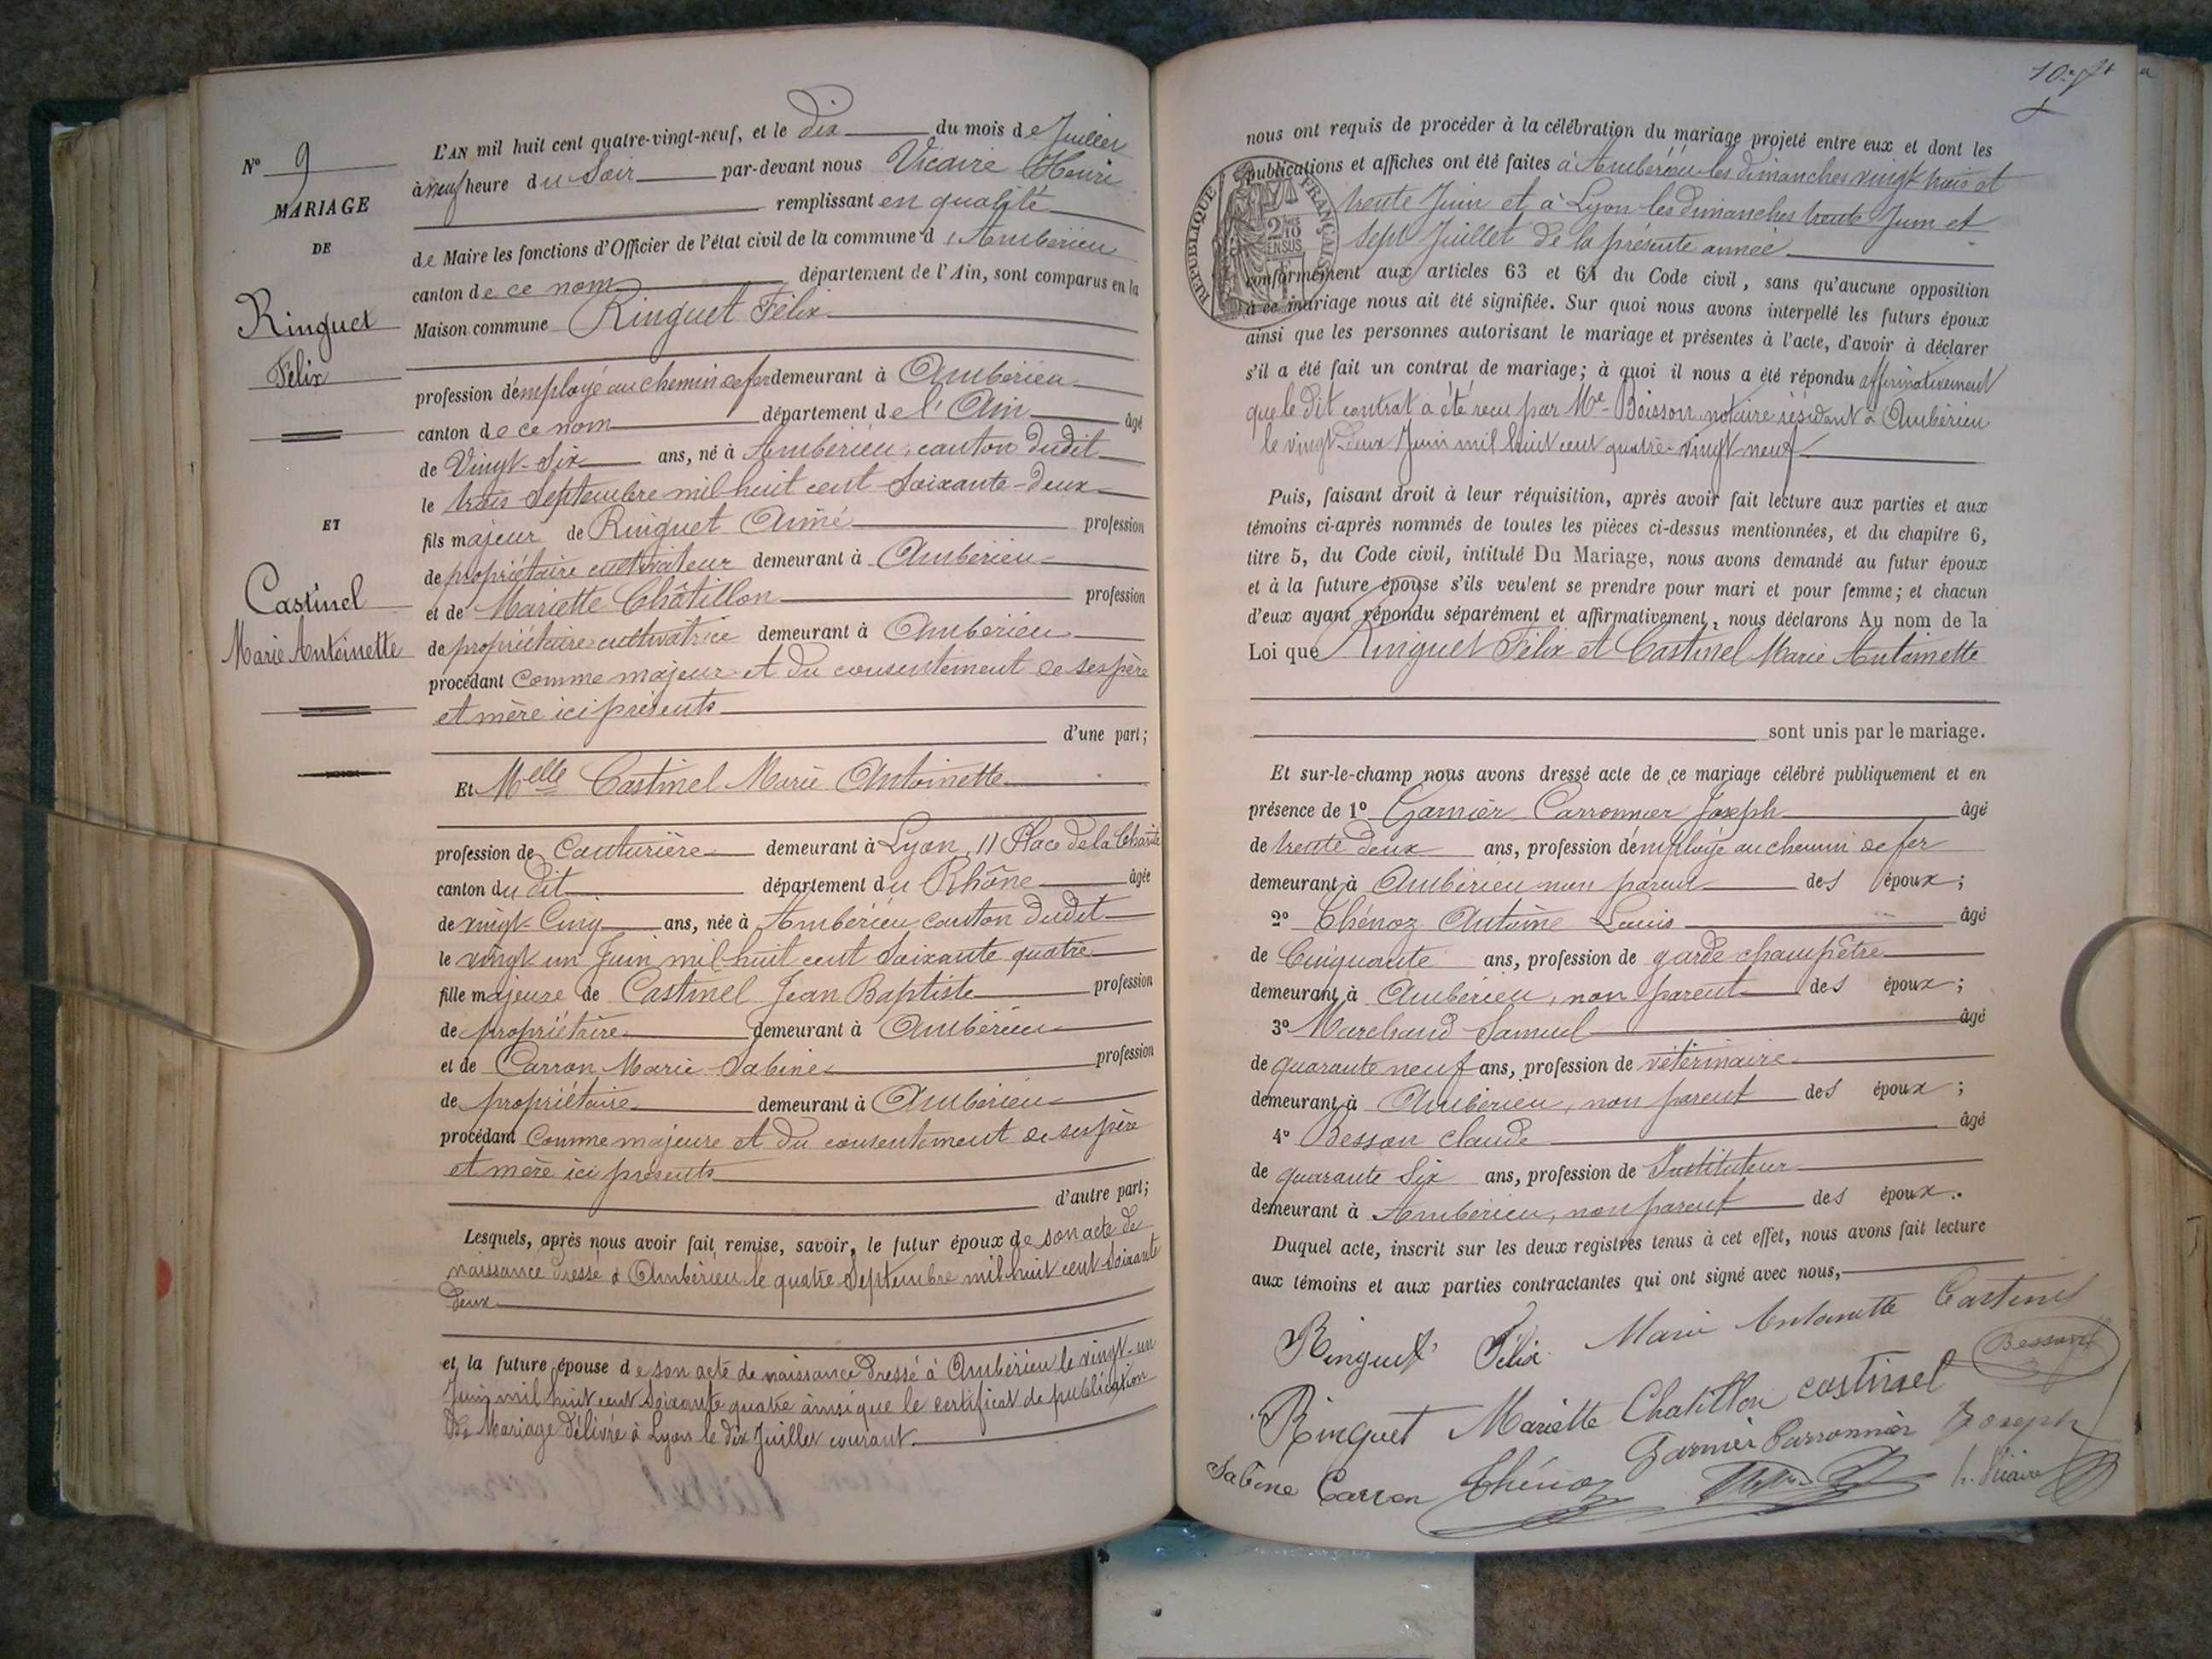 N° 9
MARIAGE
DE
Ringuet
Félix
ET
Castinel
Marie Antoinette
L'AN mil huit cent quatre-vingt-neuf, et le dix du mois de Juillet
à neuf heure du Soir par-devant nous Vicaire Henri
remplissant en qualité
de Maire les fonctions d'Officier de l'état civil de la commune d'Ambérieu
canton de ce nom département de l'Ain, sont comparus en la
Maison commune Ringuet Félix
profession d'employé au chemin de fer demeurant à Ambérieu
canton de ce nom département de l'Ain âgé
de Vingt-Six ans, né à Ambérieu, canton dudit
le trois Septembre mil huit cent Soixante-deux
fils majeur de Ringuet Aimé profession
de propriétaire cultivateur demeurant à Ambérieu
et de Mariette Châtillon profession
de propriétaire cultivatrice demeurant à Ambérieu
procédant comme majeur et du consentement de ses père
et mère ici présents
d'une part;
Et Melle Castinel Marie Antoinette
profession de Couturière demeurant à Lyon, 11 Place de la Charité
canton du dit département du Rhône âgée
de vingt-Cinq ans, née à Ambérieu canton dudit
le vingt un Juin mil huit cent Soixante quatre
fille majeure de Castinel Jean Baptiste profession
de propriétaire demeurant à Ambérieu
et de Carron Marie Sabine profession
de propriétaire demeurant à Ambérieu
procédant Comme majeure et du consentement de ses père
et mère ici présents
d'autre part;
Lesquels, après nous avoir fait remise, savoir, le futur époux de son acte de
naissance dressé à Ambérieu le quatre Septembre mil huit cent Soixante
deux
et la future épouse de son acte de naissance dressé à Ambérieu le vingt-un
Juin mil huit cent Soixante quatre ainsi que le certificat de publication
de Mariage délivré à Lyon le dix Juillet courant.
10
nous ont requis de procéder à la célébration du mariage projeté entre eux et dont les
publications et affiches ont été faites à Ambérieu les dimanches vingt trois et
trente Juin et à Lyon les dimanches trente Juin et
Sept Juillet de la présente année
conformément aux articles 63 et 64 du Code civil, sans qu'aucune opposition
à ce mariage nous ait été signifiée. Sur quoi nous avons interpellé les futurs époux
ainsi que les personnes autorisant le mariage et présentes à l'acte, d'avoir à déclarer
s'il a été fait un contrat de mariage; à quoi il nous a été répondu affirmativement
que le dit contrat a été reçu par Me Boisson notaire résidant à Ambérieu
le vingt deux Juin mil huit cent quatre-vingt neuf
RÉPUBLIQUE FRANÇAISE
2/10 EN SUS
Puis, faisant droit à leur réquisition, après avoir fait lecture aux parties et aux
témoins ci-après nommés de toutes les pièces ci-dessus mentionnées, et du chapitre 6,
titre 5, du Code civil, intitulé Du Mariage, nous avons demandé au futur époux
et à la future épouse s'ils veulent se prendre pour mari et pour femme; et chacun
d'eux ayant répondu séparément et affirmativement, nous déclarons Au nom de la
Loi que Ringuet Félix et Castinel Marie Antoinette
sont unis par le mariage.
Et sur-le-champ nous avons dressé acte de ce mariage célébré publiquement et en
présence de 1° Garnier Carronnier Joseph âgé
de trente deux ans, profession d'employé au chemin de fer
demeurant à Ambérieu non parent des époux;
2° Thénoz Antoine Louis âgé
de Cinquante ans, profession de garde champêtre
demeurant à Ambérieu, non parent des époux;
3° Marchand Samuel âgé
de quarante neuf ans, profession de vétérinaire
demeurant à Ambérieu, non parent des époux;
4° Besson Claude âgé
de quarante Six ans, profession de Instituteur
demeurant à Ambérieu, non parent des époux.
Duquel acte, inscrit sur les deux registres tenus à cet effet, nous avons fait lecture
aux témoins et aux parties contractantes qui ont signé avec nous,
Ringuet Félix Marie Antoinette Castinel
Besson
Ringuet Mariette Chatillon castinel
Garnier Carronnier Joseph
Sabine Carron Thénoz h. Vicaire